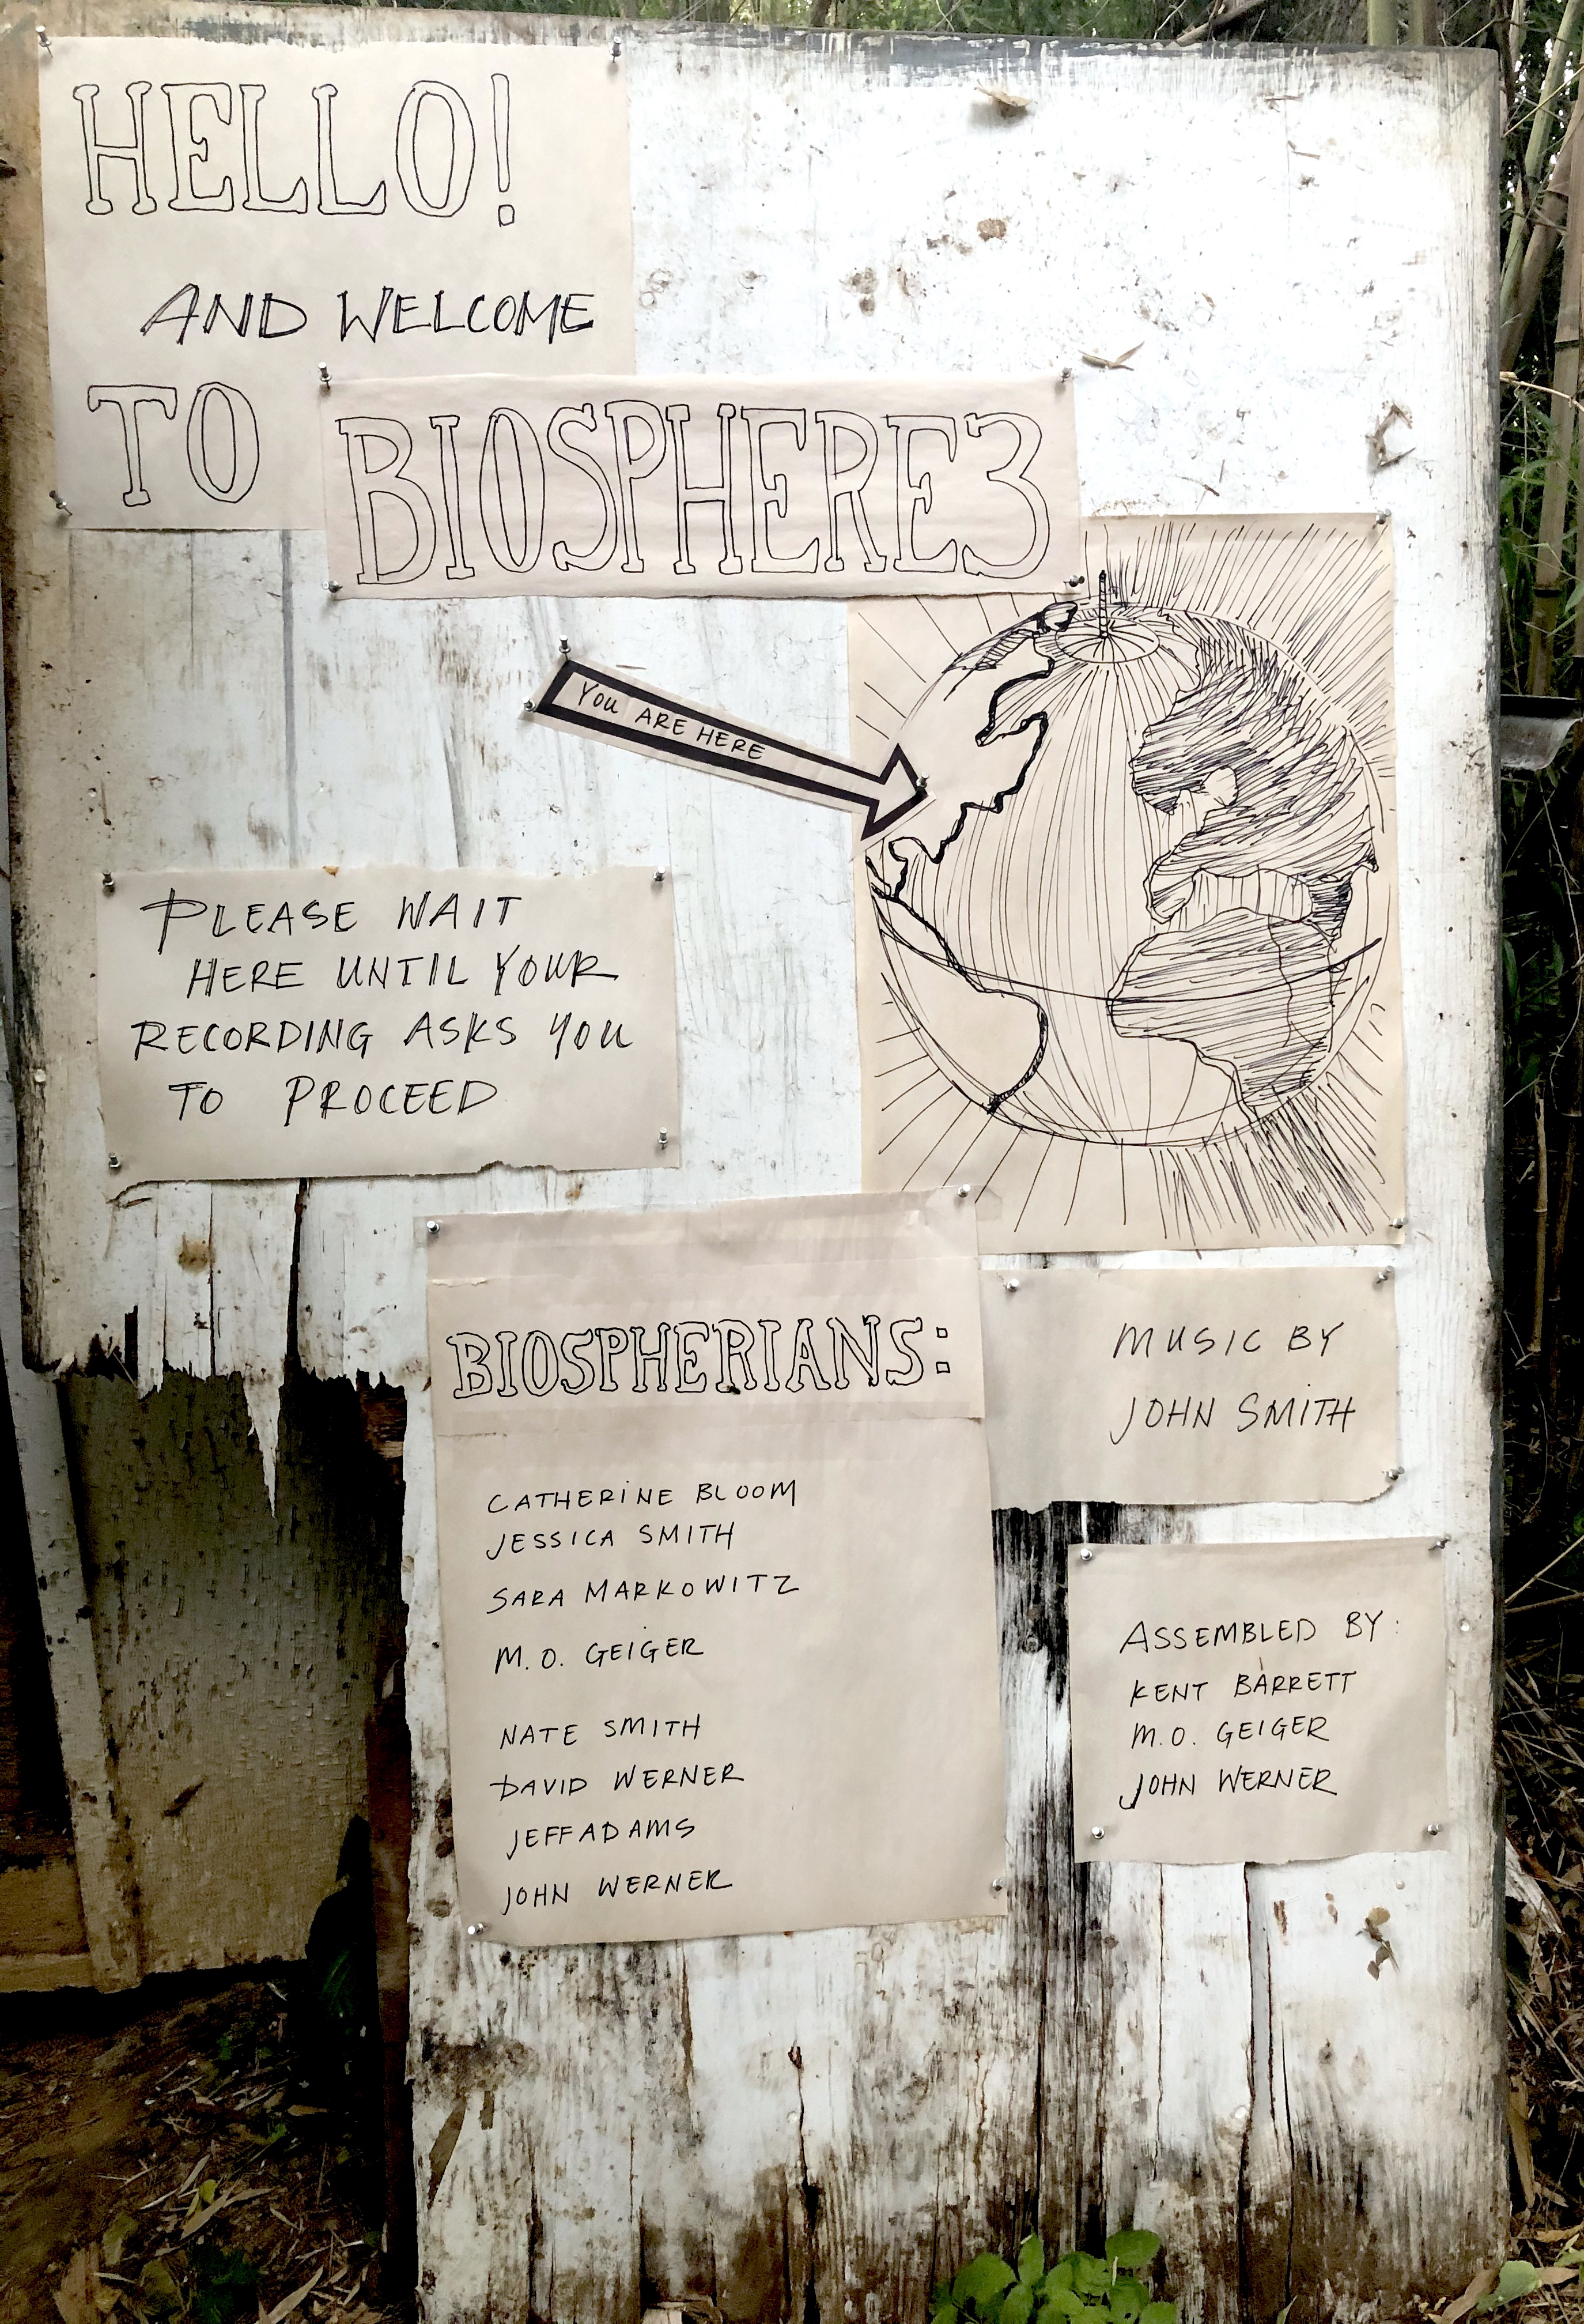 HELLO!
AND WELCOME
TO BIOSPHERE3
YOU ARE HERE
PLEASE WAIT
HERE UNTIL YOUR
RECORDING ASKS YOU
TO PROCEED
BIOSPHERIANS:
CATHERINE BLOOM
JESSICA SMITH
SARA MARKOWITZ
M.O. GEIGER
NATE SMITH
DAVID WERNER
JEFF ADAMS
JOHN WERNER
MUSIC BY
JOHN SMITH
ASSEMBLED BY:
KENT BARRETT
M.O. GEIGER
JOHN WERNER